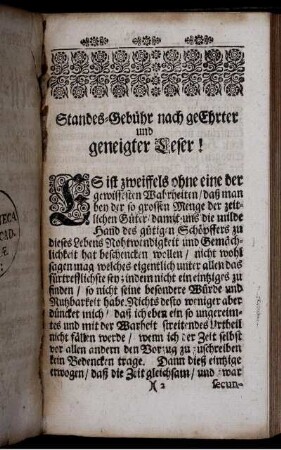 Standes-Gebühr nach geEhrter
und
geneigter Leser!
ES ist zweiffels ohne eine der
gewissesten Wahrheiten/ daß man
bey der so grossen Menge der zeit-
lichen Güter/ damit uns die milde
Hand des gütigen Schöpffers zu
dieses Lebens Nohtwendigkeit und Gemäch-
lichkeit hat beschencken wollen/ nicht wohl
sagen mag welches eigentlich unter allen das
fürtrefflichste sey; indem nicht ein einziges zu
finden/ so nicht seine besondere Würde und
Nutzbarkeit habe. Nichts desto weniger aber
düncket mich/ daß ich eben ein so ungereim-
tes und mit der Warheit streitendes Urtheil
nicht fällen werde/ wenn ich der Zeit selbst
vor allen andern den Vorzug zuzuschreiben
kein Bedencken trage. Dann dieß einzige
erwogen/ daß die Zeit gleichsam/ und zwar
)( 2 secun-
TECA
CAD.
Æ